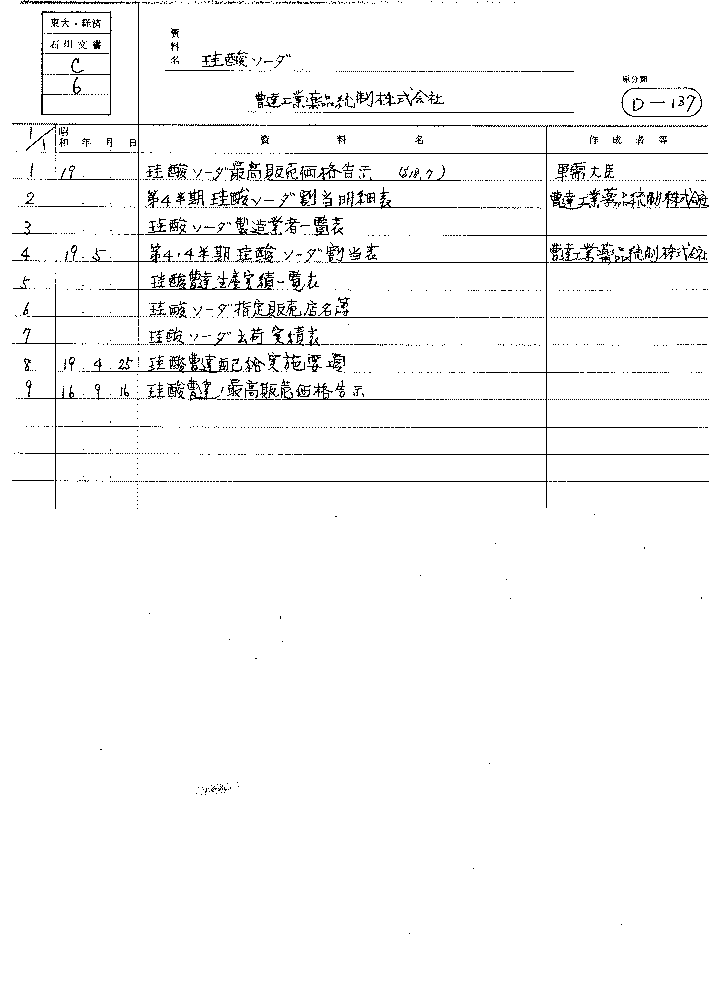 東大・経済
石川文書
C
6
資料名 珪酸ソーダ
曹達工業薬品統制株式会社
原分類
D-137
1/1 昭和 年 月 日 資料名 作成者等
1 19 珪酸ソーダ最高販売価格告示 (S18.7) 軍需大臣
2 第4半期珪酸ソーダ割当明細表 曹達工業薬品統制株式会社
3 珪酸ソーダ製造業者一覧表
4 19 5 第4.4半期珪酸ソーダ割当表 曹達工業薬品統制株式会社
5 珪酸曹達生産実績一覧表
6 珪酸ソーダ指定販売店名簿
7 珪酸ソーダ出荷実績表
8 19 4 25 珪酸曹達配給実施要項
9 16 9 16 珪酸曹達ノ最高販売価格告示